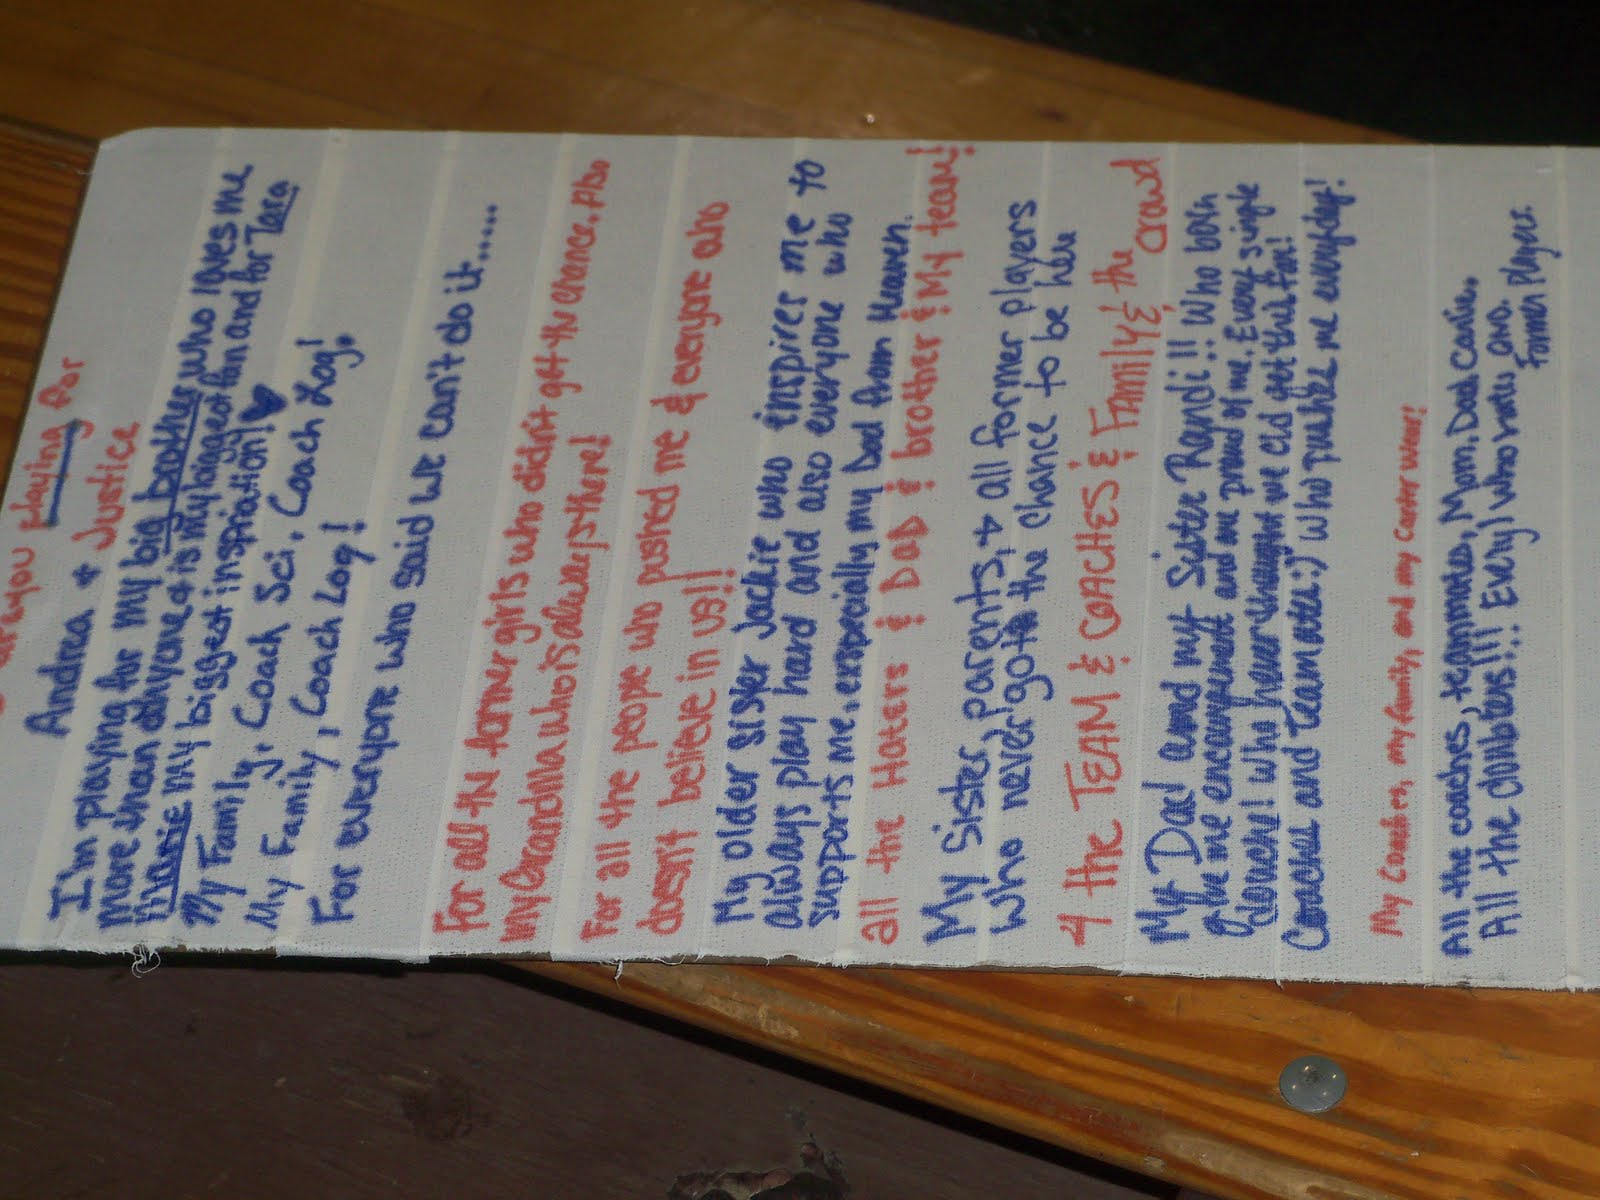 are you playing for
Andrea + Justice
I'm playing for my big brother who loves me
more than anyone & is my biggest fan and for Tara
Marie my biggest inspiration!
My Family, Coach Sci, Coach Log!
My Family, Coach Log!
For everyone who said we can't do it......
For all the former girls who didn't get the chance. Also
my Grandma who is always there!
For all the people who pushed me & everyone who
doesn't believe in us!!
My older sister Jackie who inspires me to
always play hard and also everyone who
supports me, especially my Dad from Heaven.
all the Haters & DAD & brother & My team!
My Sister, parents, + all former players
who never got the chance to be here
4 the TEAM & COACHES & Family & the crowd
My Dad and my Sister Randi!! Who both
give me encouragement and are proud of me. Every single
who never thought we cld get this far!
Coaches and Teammates:) who pushes me everyday!
My Coaches, my family, and my Carter Wear!
All the coaches, teammates, Mom, Dad, Carlie,
All the doubters!!! Every1 who roots 4 no.
Former Players.